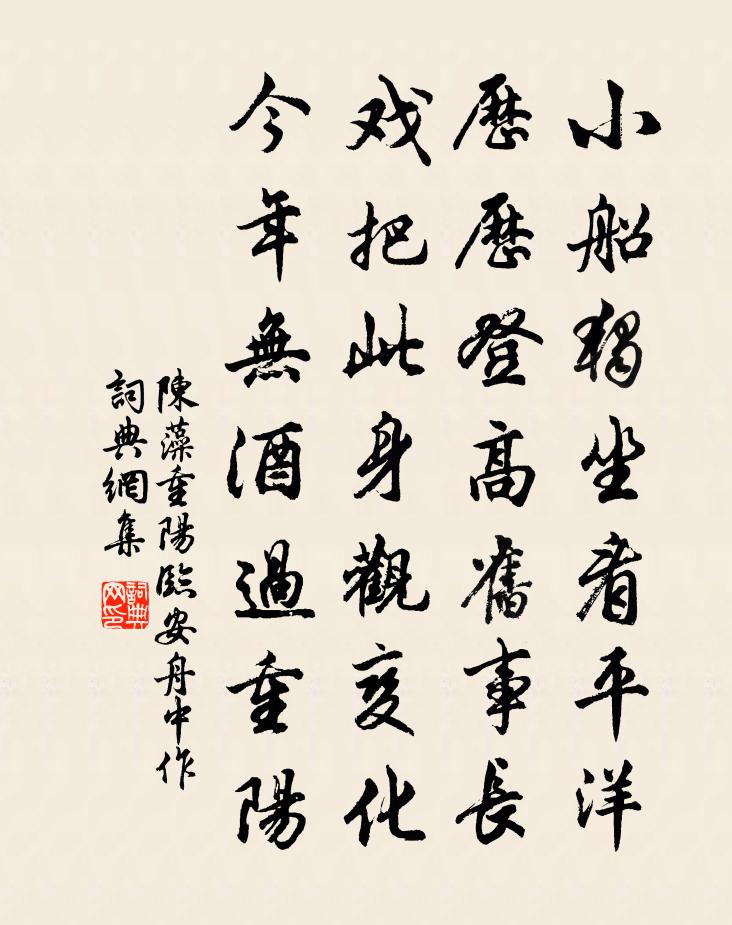 小船獨坐看平洋
歷歷登高舊事長
戏把此身觀变化
今年無酒過重陽
陳藻重陽臨安舟中作
詞典網集
詞典网印